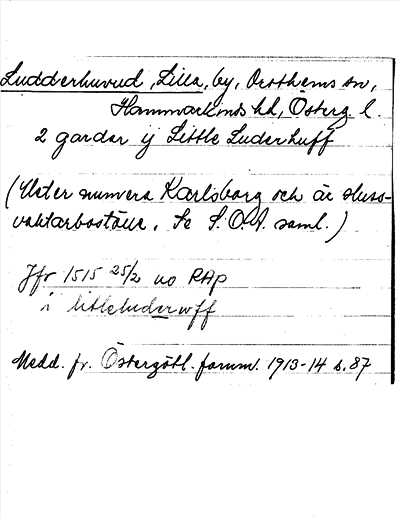 Ludderhuvud, Lilla, by, Örsthems sn,
Hammarkinds hd, Österg. l.
2 gardar ij Little Luderhuff
(Heter numera Karlsborg och är sluss-
vaktarbostäue. Se S.O.A. saml.)
Jfr 1515 25/2 uo RAp
i litleluderwff
Medd. fr. Östergötl. fornm. 1913-14 s. 87